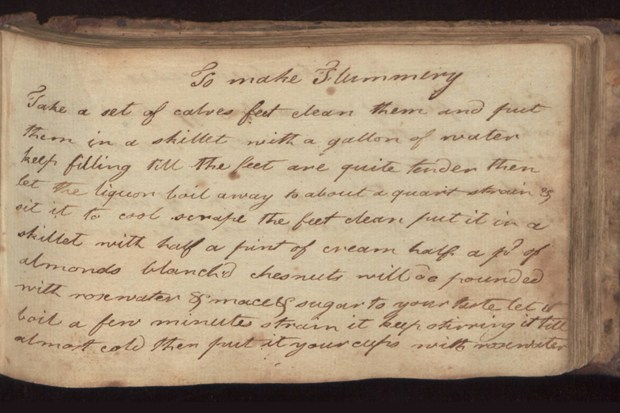 To make Flummery
Take a set of calves feet clean them and put
them in a skillet with a gallon of water
keep filling till the feet are quite tender then
let the liquor boil away to about a quart strain &
sit it to cool scrape the feet clean put it in a
skillet with half a pint of cream half a pd of
almonds blanch'd chesnuts will do pounded
with rosewater & mace & sugar to your taste let it
boil a few minutes strain it keep stirring it till
almost cold then put it your cups with rosewater